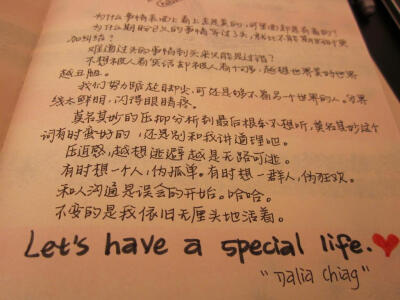 为什么事情表面上看上去是美的,可里面却是有毒的?
为什么期盼已久的事情等过了头,就比不能期盼的时候更
加纠结?
难道过头的事情到头来只能是过错?
不想被人看笑话却被人看个够,越想世界美好世界
越丑脸。
我们努力踮起脚尖,可还是够不着另一个世界的人。分界
线太鲜明,闪得眼睛疼。
莫名其妙的压抑分析到最后根本不想听,莫名其妙这个
词有时蛮好的,还是别和我讲道理吧。
压迫感,越想逃避越是无路可逃。
有时想一个人,伪孤单。有时想一群人,伪狂欢。
和人沟通是误会的开始。哈哈。
不变的是我依旧无厘头地活着。
Let's have a special life.
"Dalia Chiag"